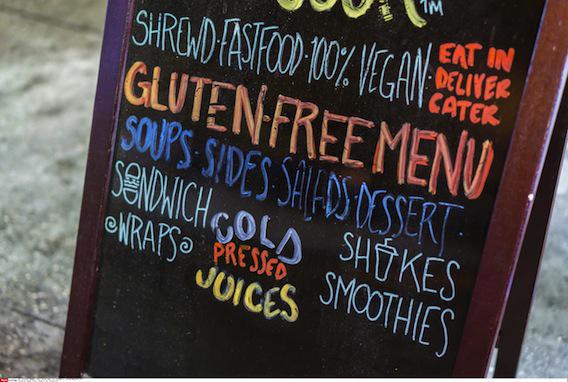 TM
SHREWD·FASTFOOD·100% VEGAN·
EAT IN
DELIVER
CATER
GLUTEN-FREE MENU
SOUPS·SIDES·SALADS·DESSERT·
SANDWICH
WRAPS
COLD
PRESSED
JUICES
SHAKES
SMOOTHIES